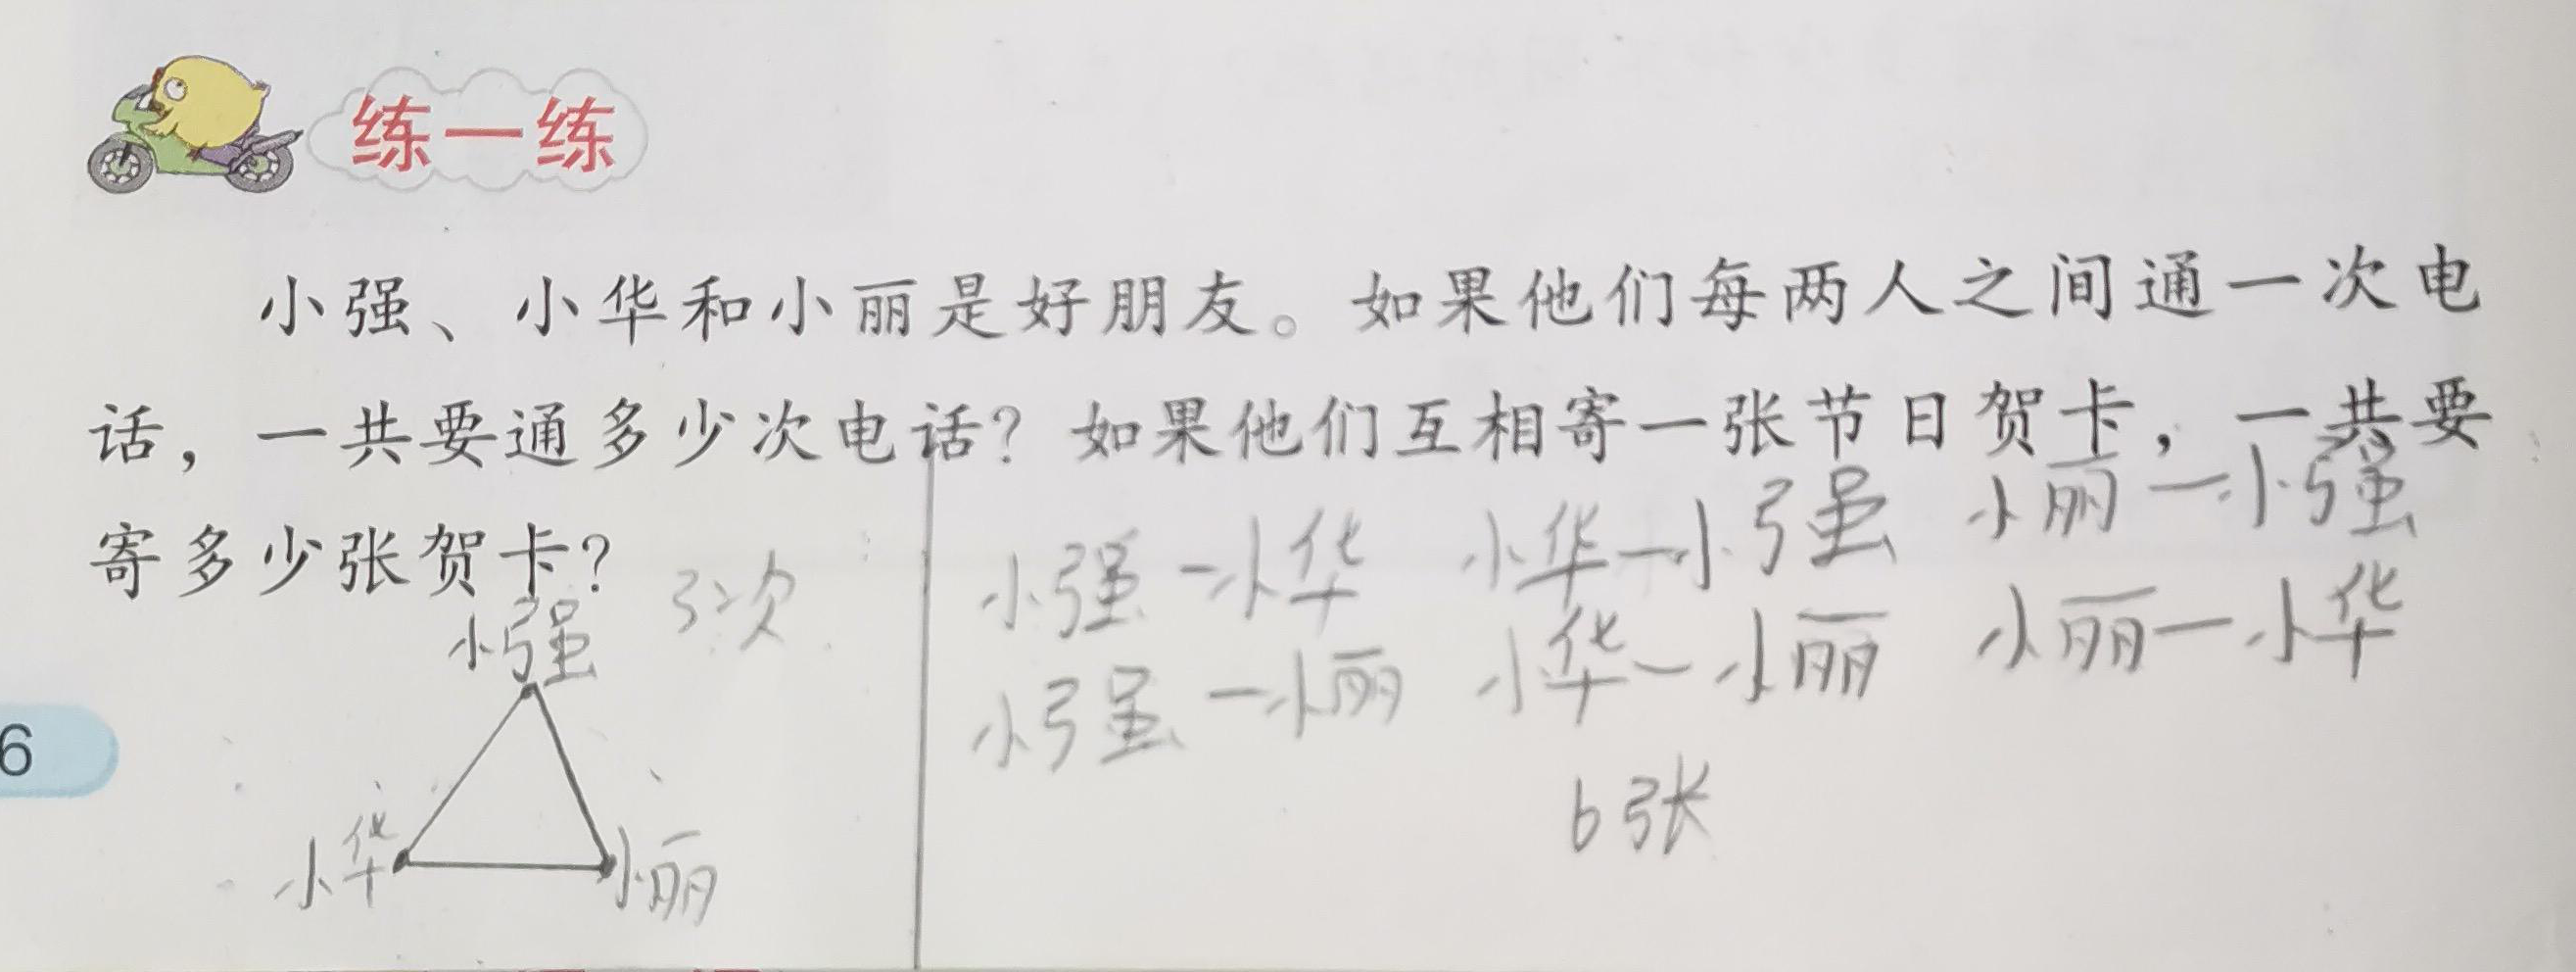 练一练
小强、小华和小丽是好朋友。如果他们每两人之间通一次电
话，一共要通多少次电话？如果他们互相寄一张节日贺卡，一共要
寄多少张贺卡？
3次
小强
小华 小丽
小强一小华 小华一小强 小丽一小强
小强一小丽 小华一小丽 小丽一小华
6张
6